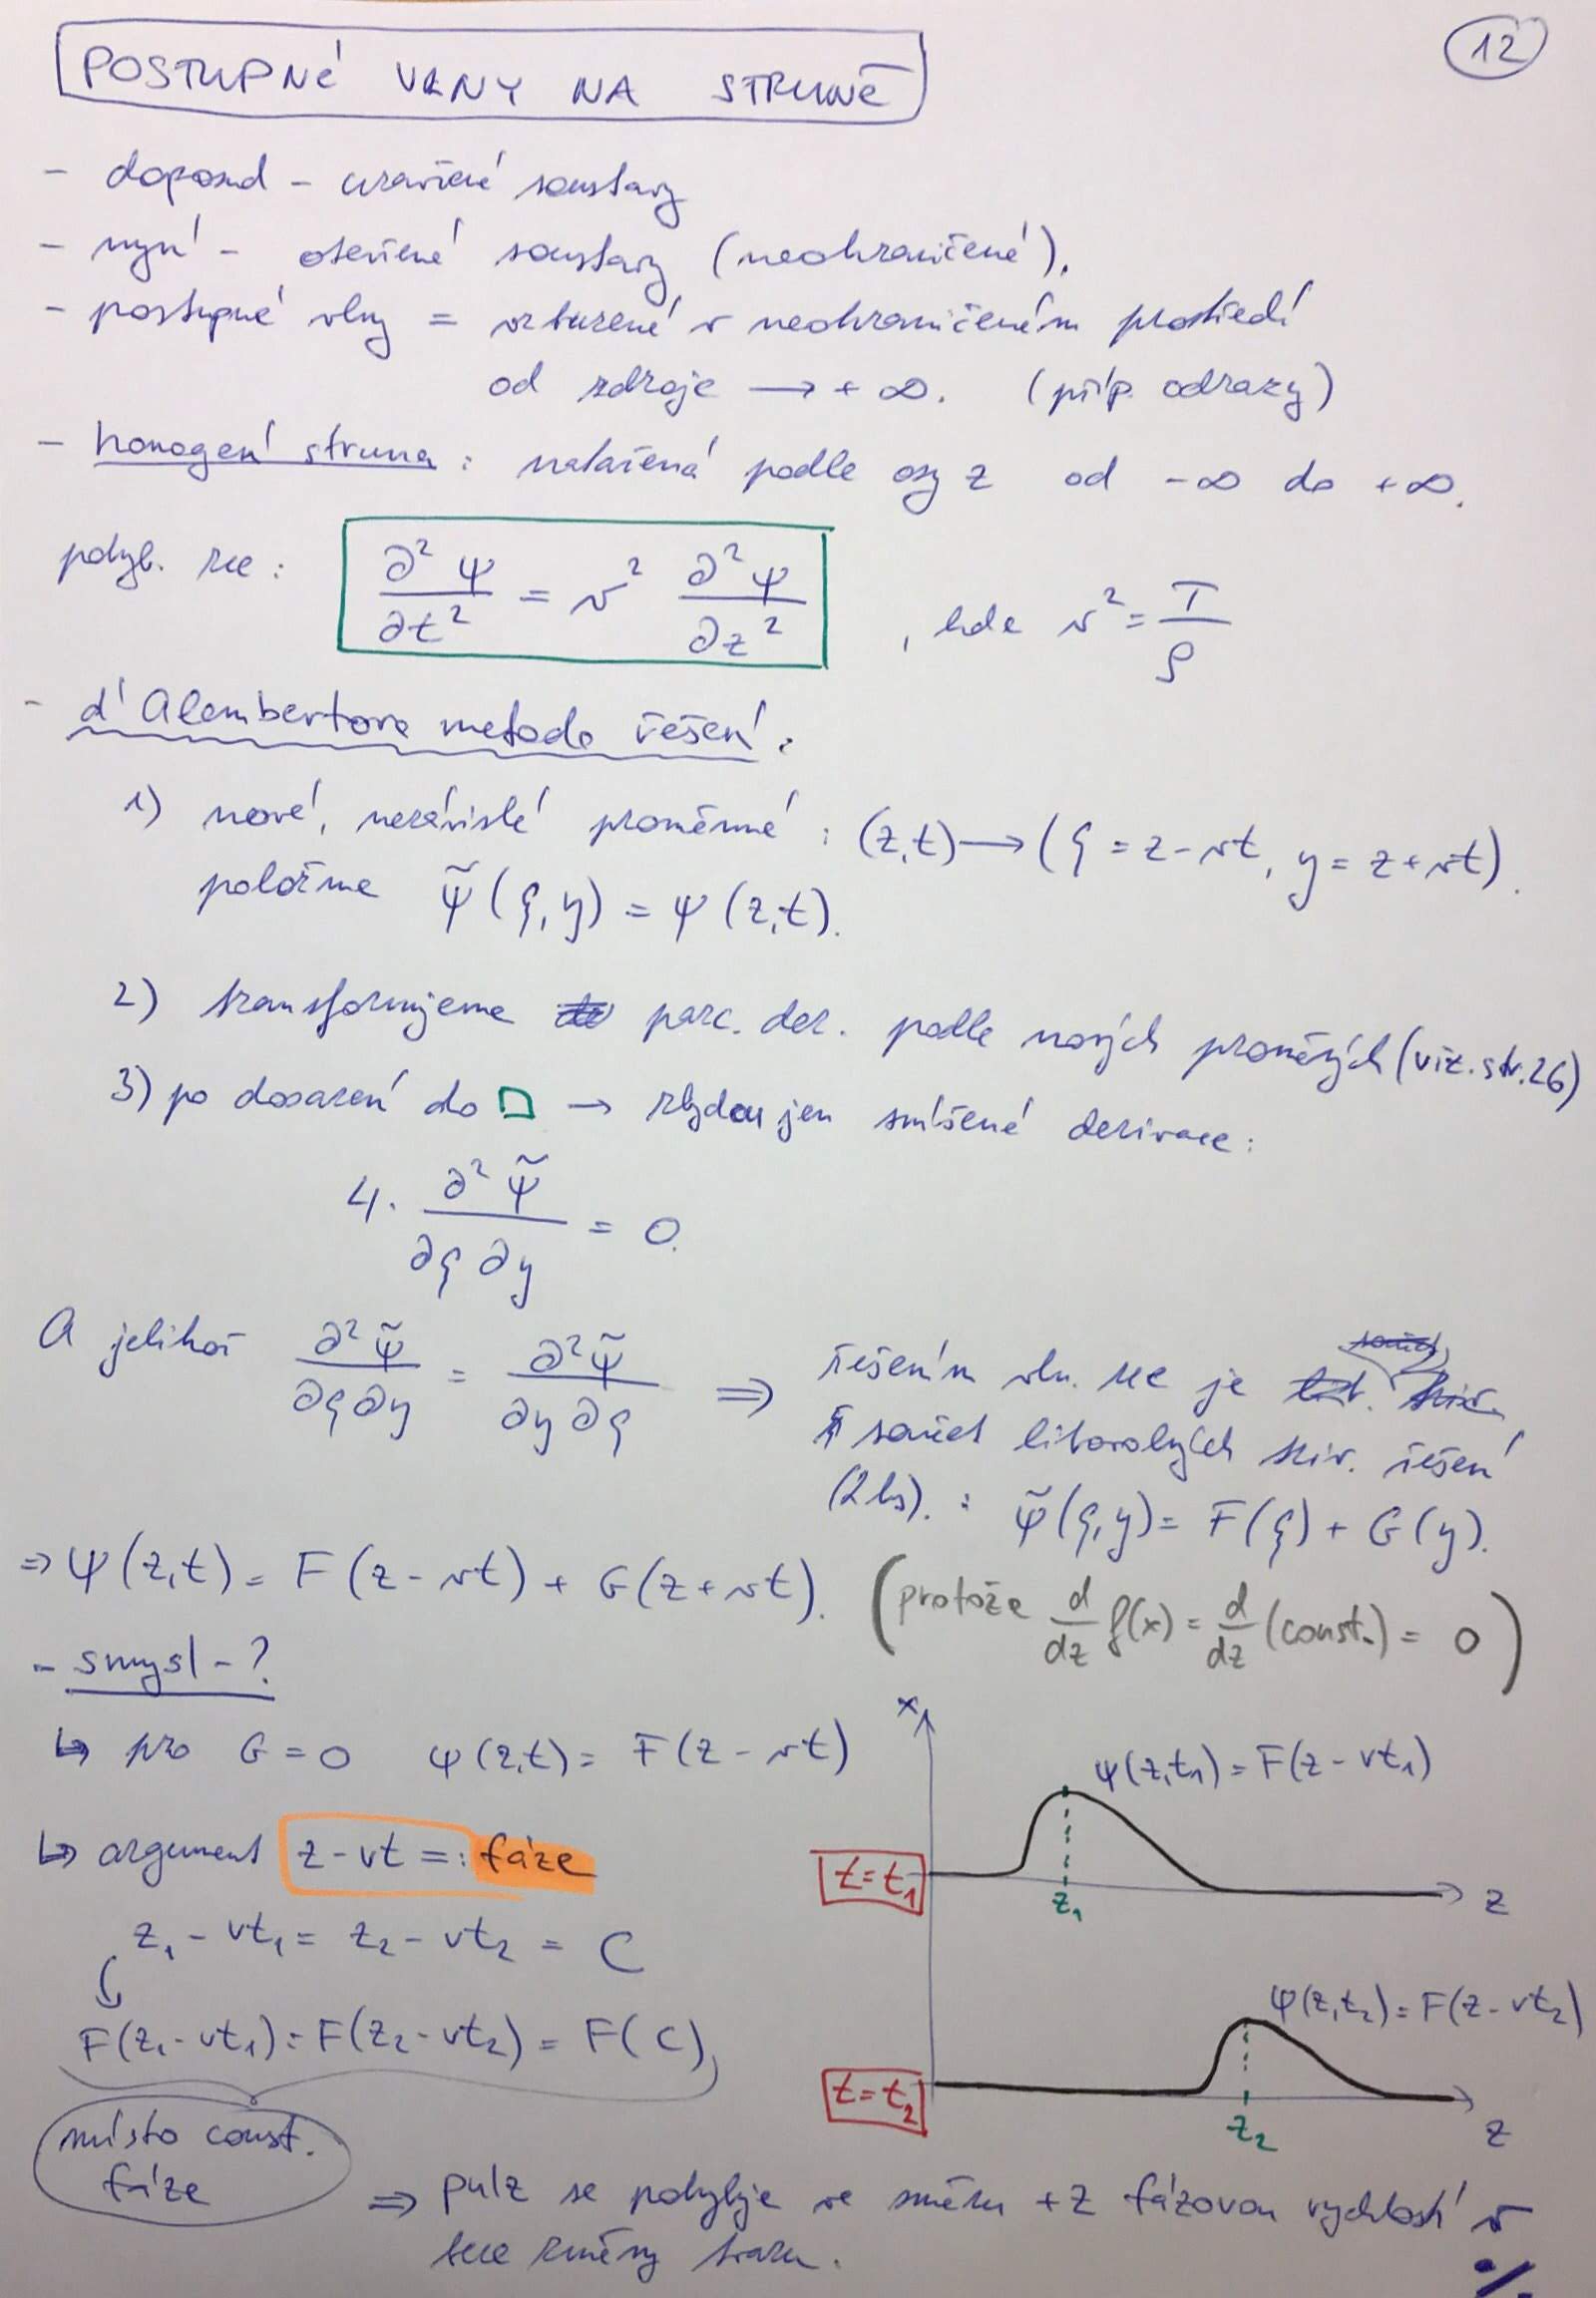 12
POSTUPNÉ VLNY NA STRUNĚ
- doposud - uzavřené soustavy
- nyní - otevřené soustavy (neohraničené).
- postupné vlny = vzbuzené v neohraničeném prostředí
od zdroje → +∞. (příp. odrazy)
- homogení struna : natažená podle osy z od -∞ do +∞.
pohyb. rce : ∂²ψ/∂t² = v² ∂²ψ/∂z² , kde v² = T/ρ
- d'Alembertova metoda řešení :
1) nové, nezávislé proměnné : (z,t) → (ξ = z-vt, y = z+vt).
položme ψ̃(ξ,y) = ψ(z,t).
2) transformujeme parc. der. podle nových proměných (viz. str. 26)
3) po dosazení do □ → zbydou jen smíšené derivace :
4. ∂²ψ̃/∂ξ∂y = 0.
A jelikož ∂²ψ̃/∂ξ∂y = ∂²ψ̃/∂y∂ξ ⇒ řešením vln. rce je
součet libovolných řešení
(2 ks). : ψ̃(ξ,y) = F(ξ) + G(y).
⇒ ψ(z,t) = F(z-vt) + G(z+vt). (protože d/dz f(x) = d/dz (const.) = 0)
- smysl - ?
↳ pro G = 0 ψ(z,t) = F(z-vt)
↳ argument z-vt =: fáze
z₁ - vt₁ = z₂ - vt₂ = C
F(z₁-vt₁) = F(z₂-vt₂) = F(C)
místo const.
fáze
x
ψ(z,t₁) = F(z-vt₁)
t=t₁
z₁
z
ψ(z,t₂) = F(z-vt₂)
t=t₂
z₂
z
⇒ pulz se pohybuje ve směru +z fázovou rychlostí v
beze změny tvaru.
%